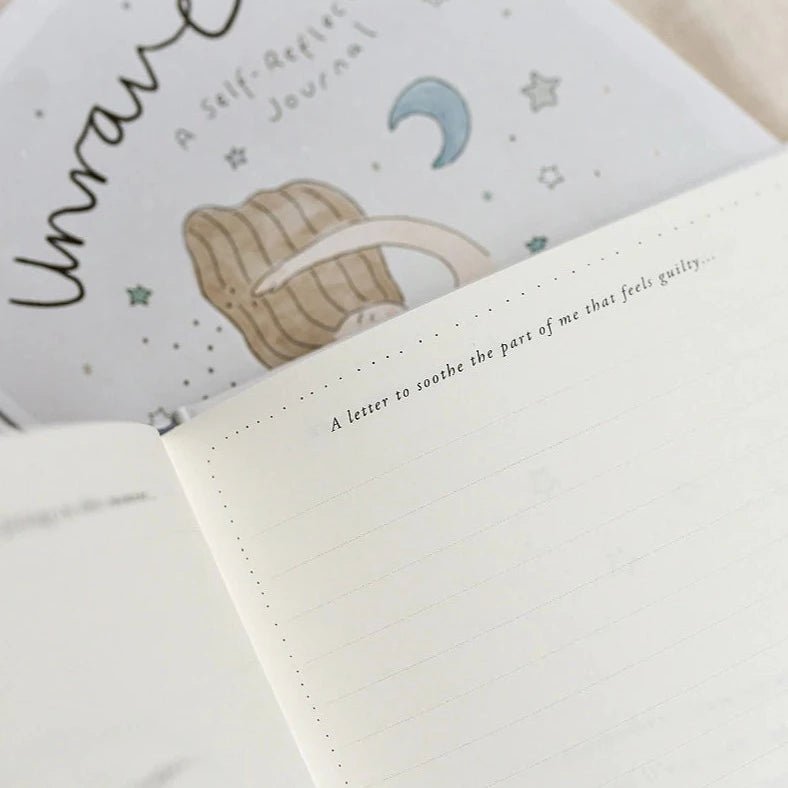 Unrave
A Self-Reflec
Journal
A letter to soothe the part of me that feels guilty...